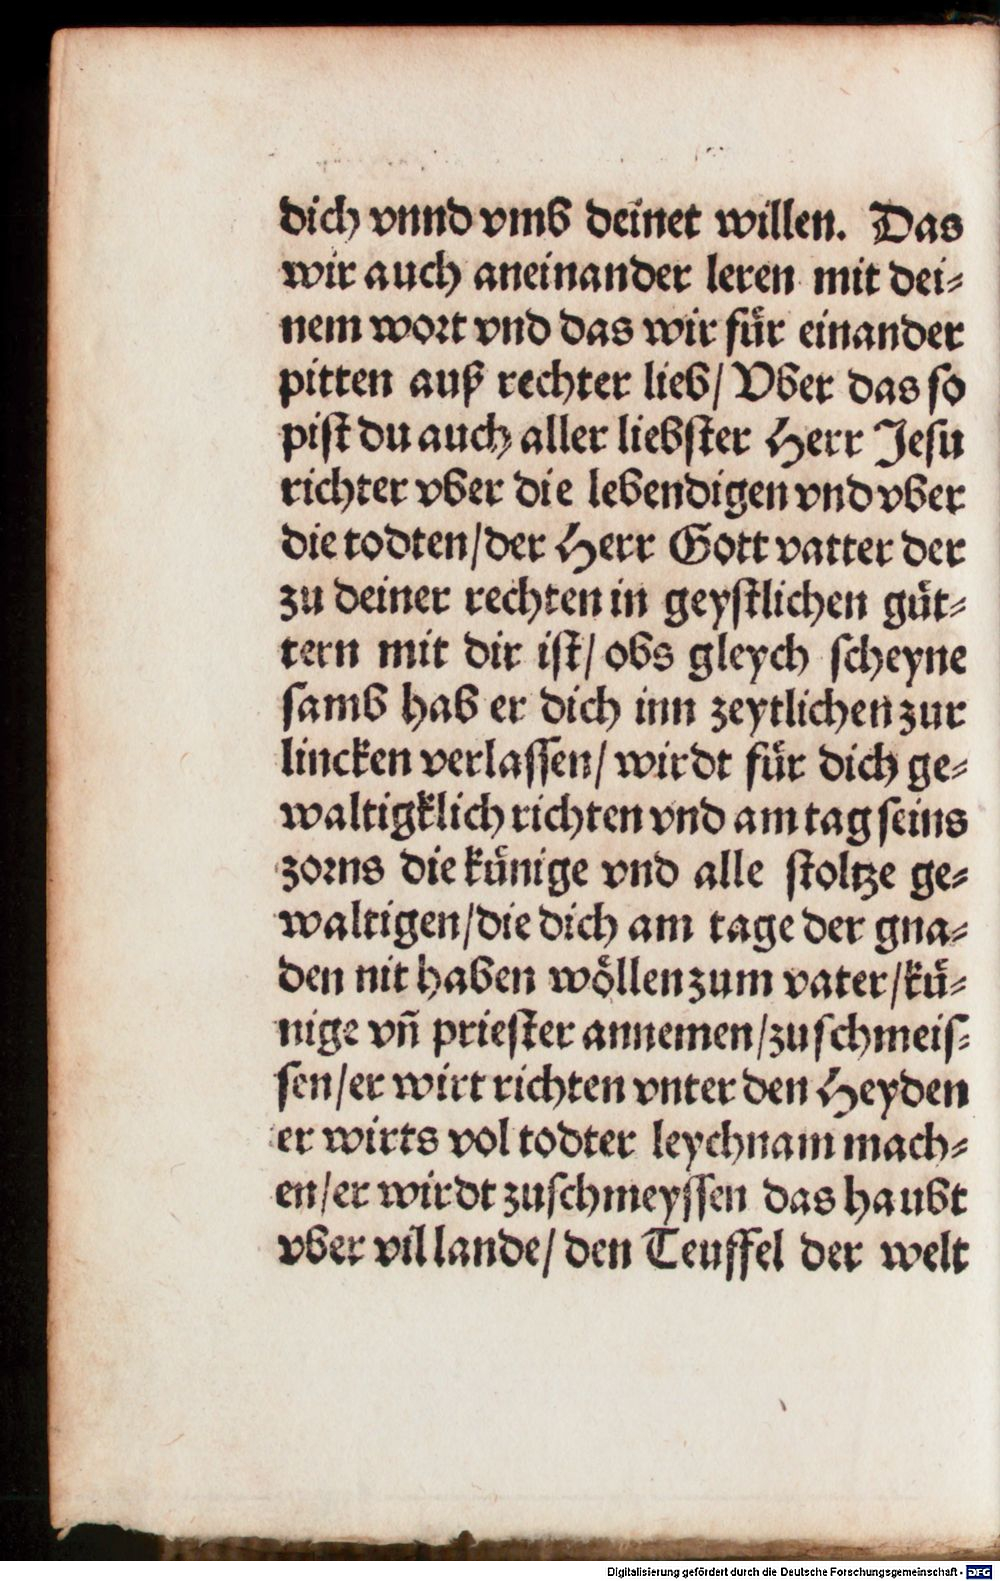 dich vnnd vmb deinet willen. Das
wir auch aneinander leren mit dei⸗
nem wort vnd das wir fuͤr einander
pitten auß rechter lieb/ Vber das so
pist du auch aller liebster Herr Jesu
richter vber die lebendigen vnd vber
die todten/der Herr Gott vatter der
zu deiner rechten in geystlichen guͤt⸗
tern mit dir ist/ obs gleych scheyne
samb hab er dich inn zeytlichen zur
lincken verlassen/ wirdt fuͤr dich ge⸗
waltigklich richten vnd am tag seins
zorns die kuͤnige vnd alle stoltze ge⸗
waltigen/die dich am tage der gna⸗
den nit haben woͤllen zum vater/kuͤ⸗
nige vñ priester annemen/zuschmeis⸗
sen/er wirt richten vnter den Heyden
er wirts vol todter leychnam mach⸗
en/er wirdt zuschmeyssen das haubt
vber vil lande/ den Teuffel der welt
Digitalisierung gefördert durch die Deutsche Forschungsgemeinschaft - DFG